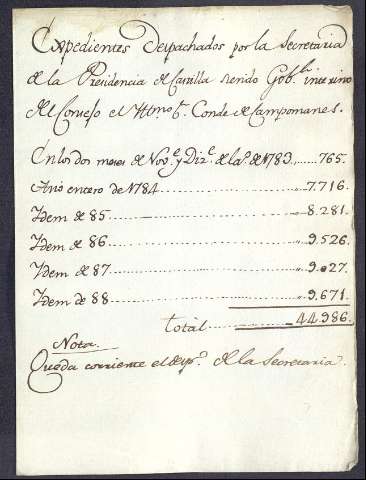 Expedientes Despachados por la Secretaria
de la Presidencia de Castilla siendo Gob.r interino
del Consejo el Yltmo S. Conde de Campomanes.
En los dos meses de Nov.e y Diz.e de la.o de 1783......765.
Año entero de 1784..................7.716.
Ydem de 85..................8.281.
Ydem de 86..................9.526.
Ydem de 87..................9.027.
Ydem de 88..................9.671.
total..........44.986.
Nota.
Queda corriente el desp.o de la Secretaria.